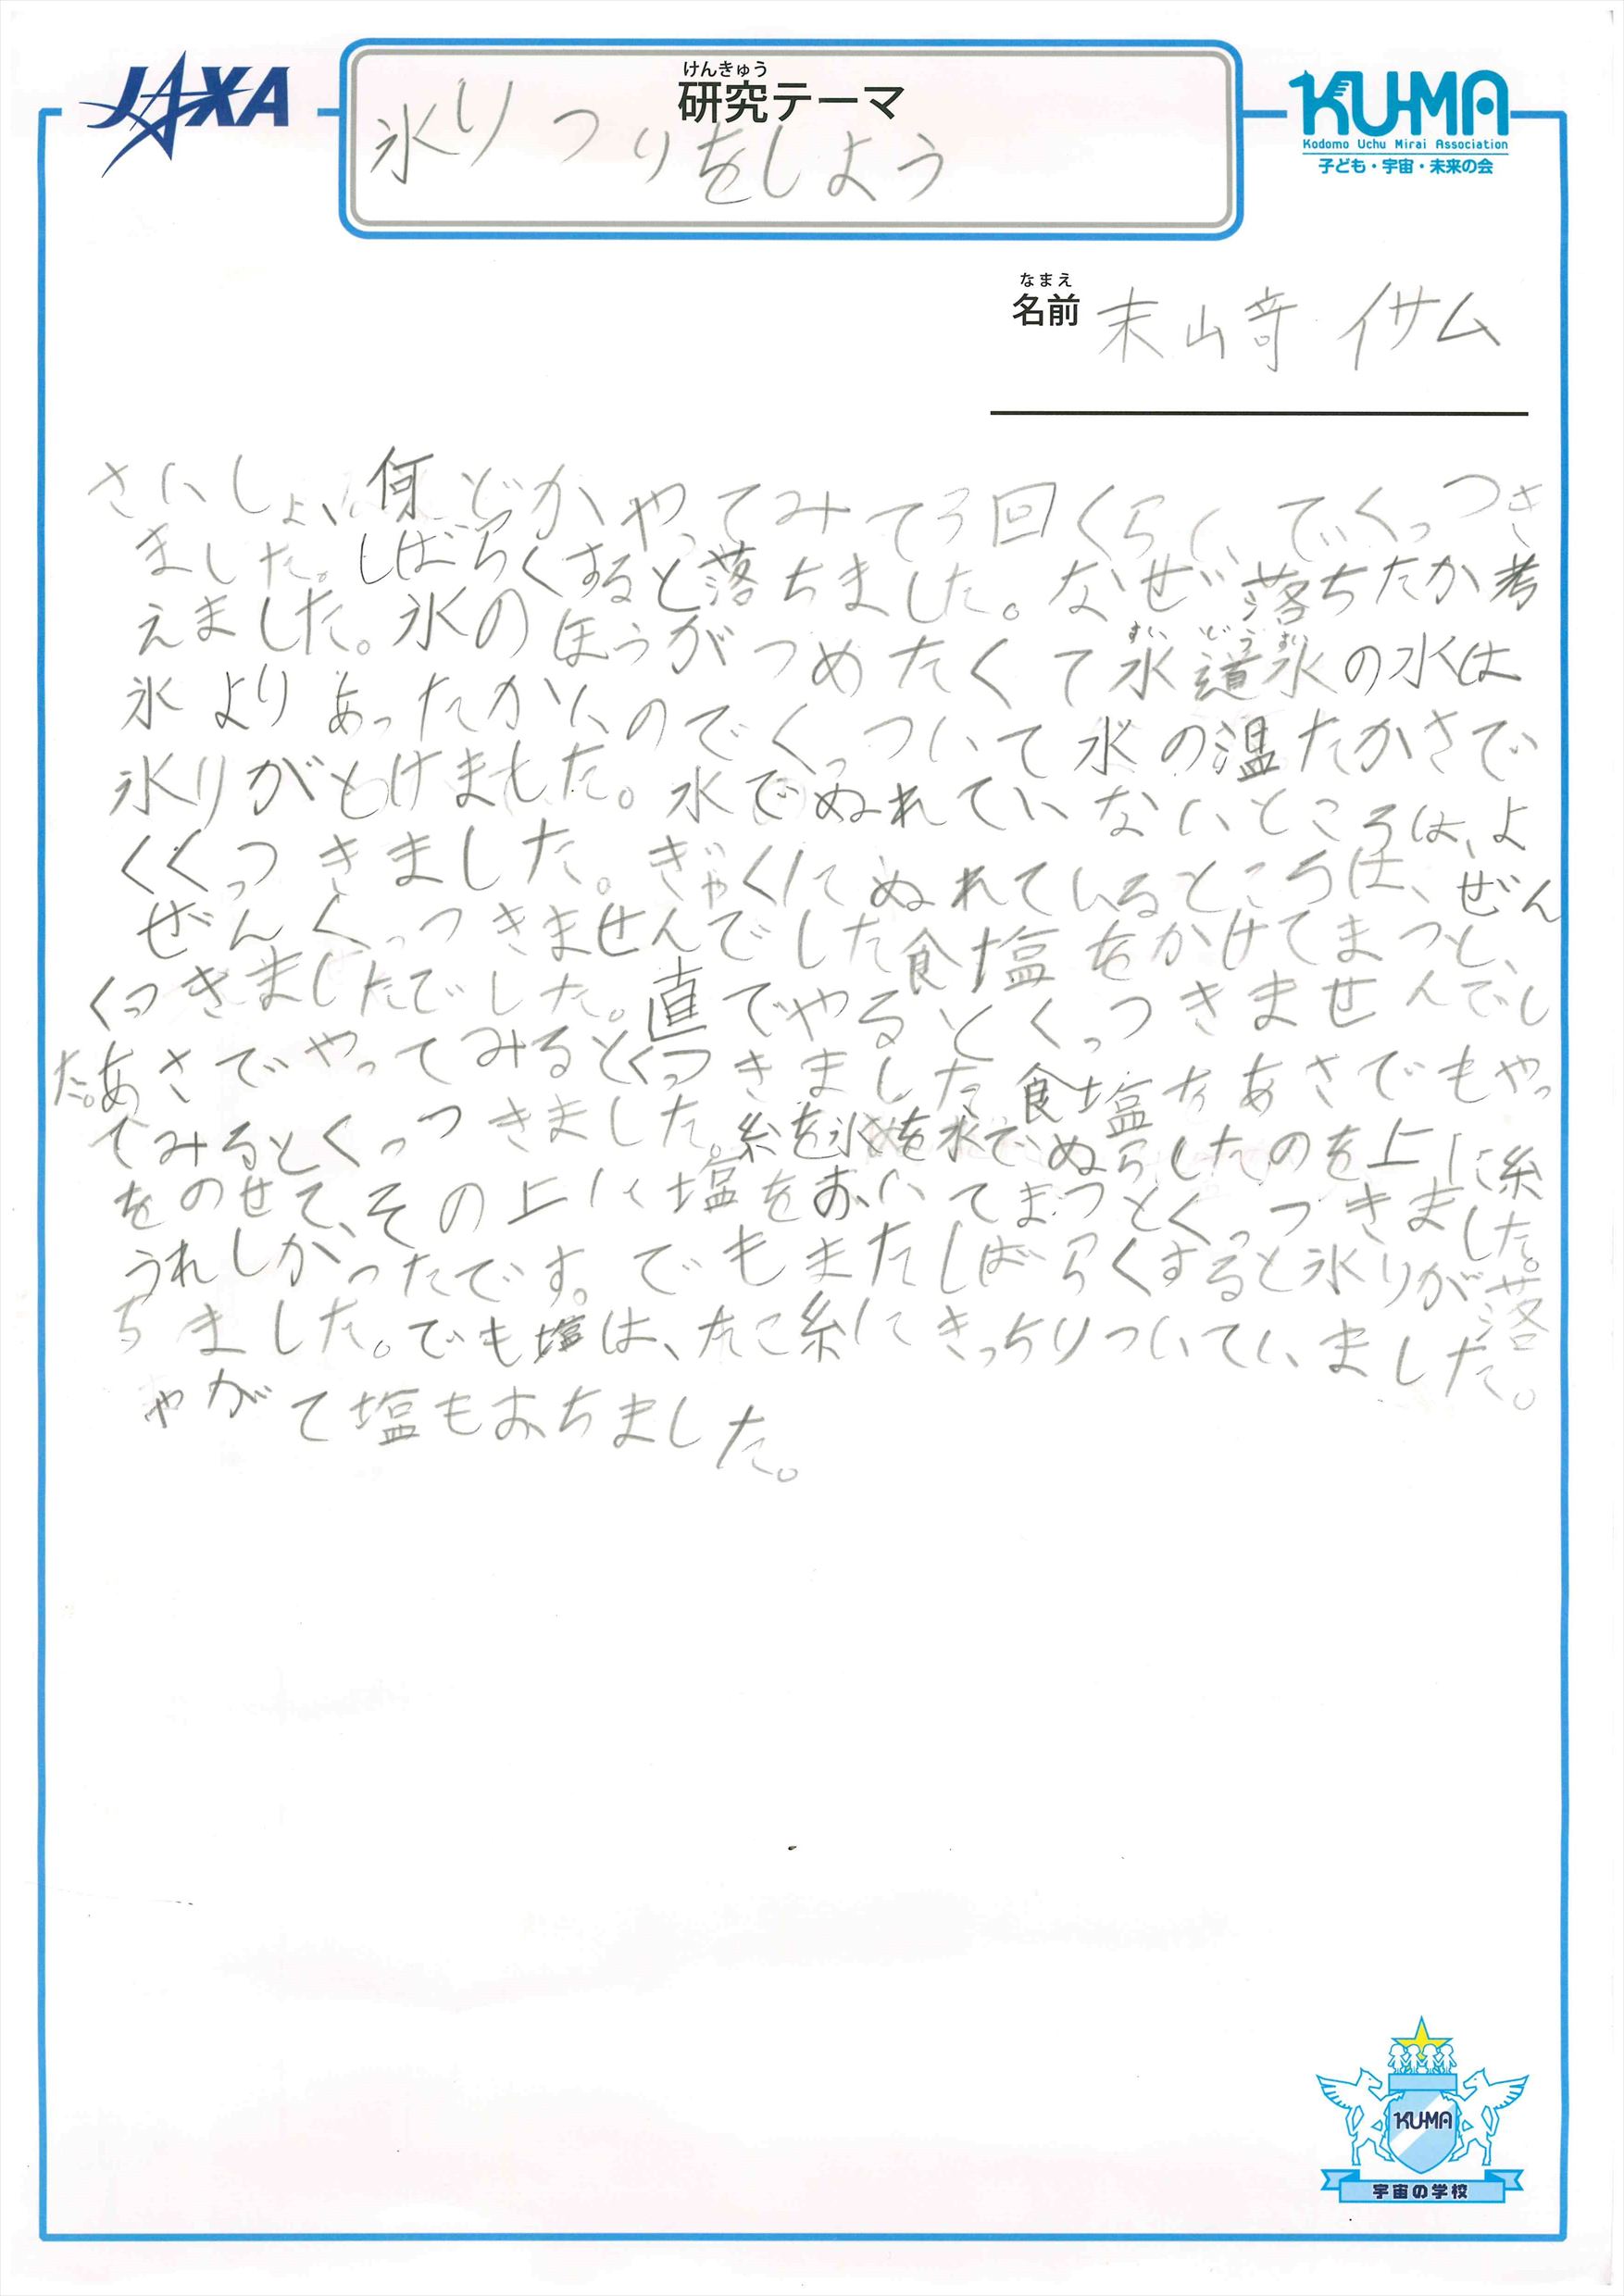 JAXA
けんきゅう
研究テーマ
氷りつりをしよう
KUMA
Kodomo Uchu Mirai Association
子ども・宇宙・未来の会
なまえ
名前 末山奇 イサム
さいしょ、何どかやってみて3回くらいでくっつき
ました。しばらくすると落ちました。なぜ落ちたか考
えました。氷のほうがつめたくて水道水の水は
すい どう すい
氷よりあったかいのでくっついて水の温たかさで
氷りがとけました。水でぬれていないところは、よ
くくっつきました。ぎゃくにぬれているところは、ぜん
ぜんくっつきませんでした食塩をかけてまつと、
くっつきましたでした。直でやるとくっつきませんでし
た。あさでやってみるとくっつきました食塩をあさでもやっ
てみるとくっつきました。糸を氷を水でぬらしたのを上に糸
をのせて、その上に塩をおいてまつとくっつきました。
うれしかったです。でもまたしばらくすると氷りが落
ちました。でも塩は、たこ糸にきっちりついていました。
やがて塩もおちました。
KUMA
宇宙の学校